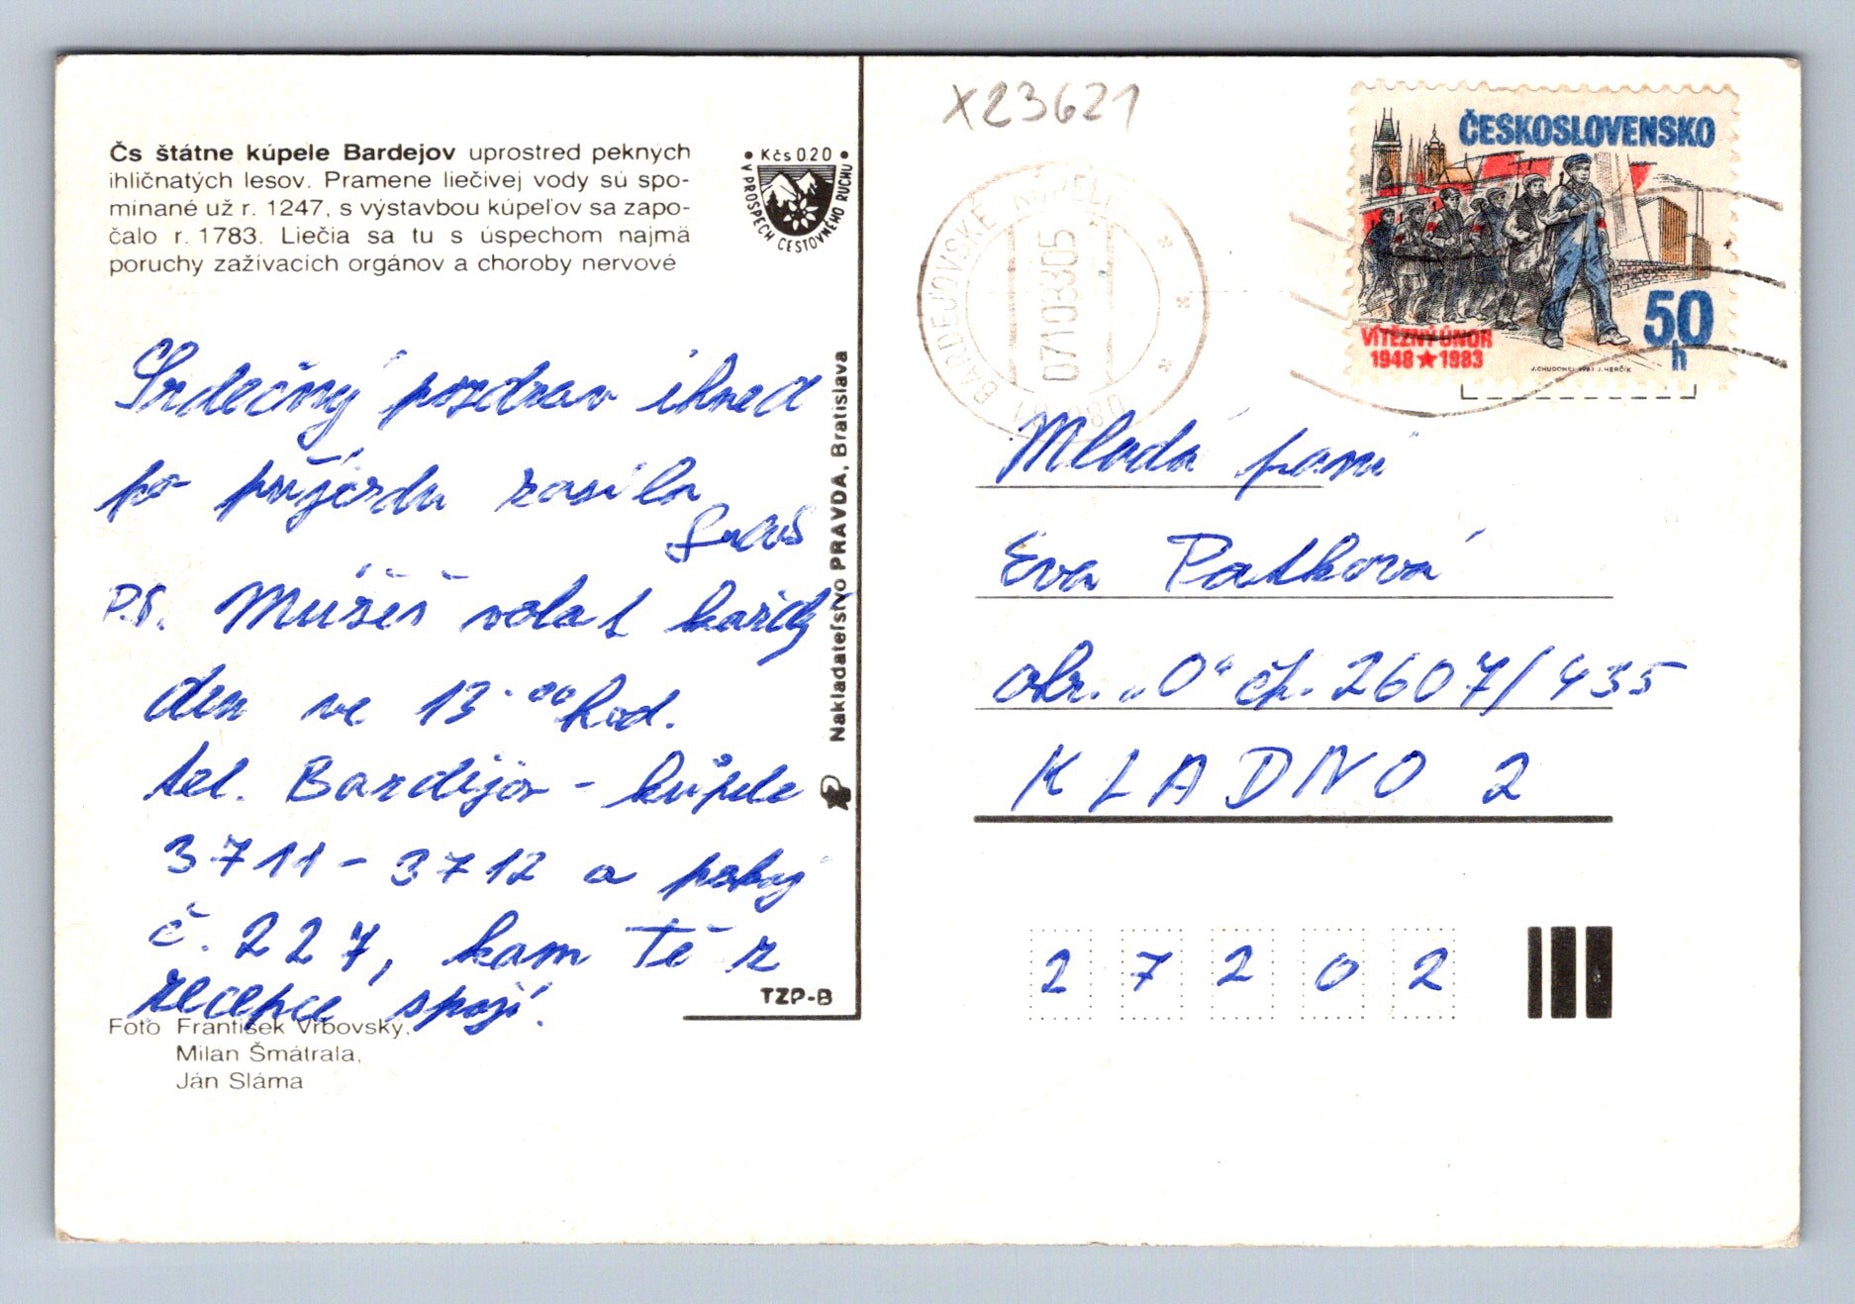 Čs štátne kúpele Bardejov uprostred peknych
ihličnatých lesov. Pramene liečivej vody sú spo-
mínané už r. 1247, s výstavbou kúpeľov sa zapo-
čalo r. 1783. Liečia sa tu s úspechom najmä
poruchy zažívacích orgánov a choroby nervové
• Kčs 0.20 •
V PROSPECH CESTOVNÉHO RUCHU
Srdečný pozdrav ihned
po příjezdu zasílá
P.S. Musíš volat každý
den ve 13.00 hod.
tel. Bardějov - kúpele
3711 - 3712 a pokoj
č. 227, kam Tě z
recepce spojí.
Foto František Vrbovský,
Milan Šmátrala,
Ján Sláma
Nakladateľstvo PRAVDA, Bratislava
TZP-B
X23621
BARDEJOVSKÉ KÚPELE
07108305
ČESKOSLOVENSKO
VÍTĚZNÝ ÚNOR
1948 ★ 1983
50
h
J. HERČÍK
Mladá paní
Eva Patková
obr. „0“ čp. 2607/435
KLADNO 2
2 7 2 0 2